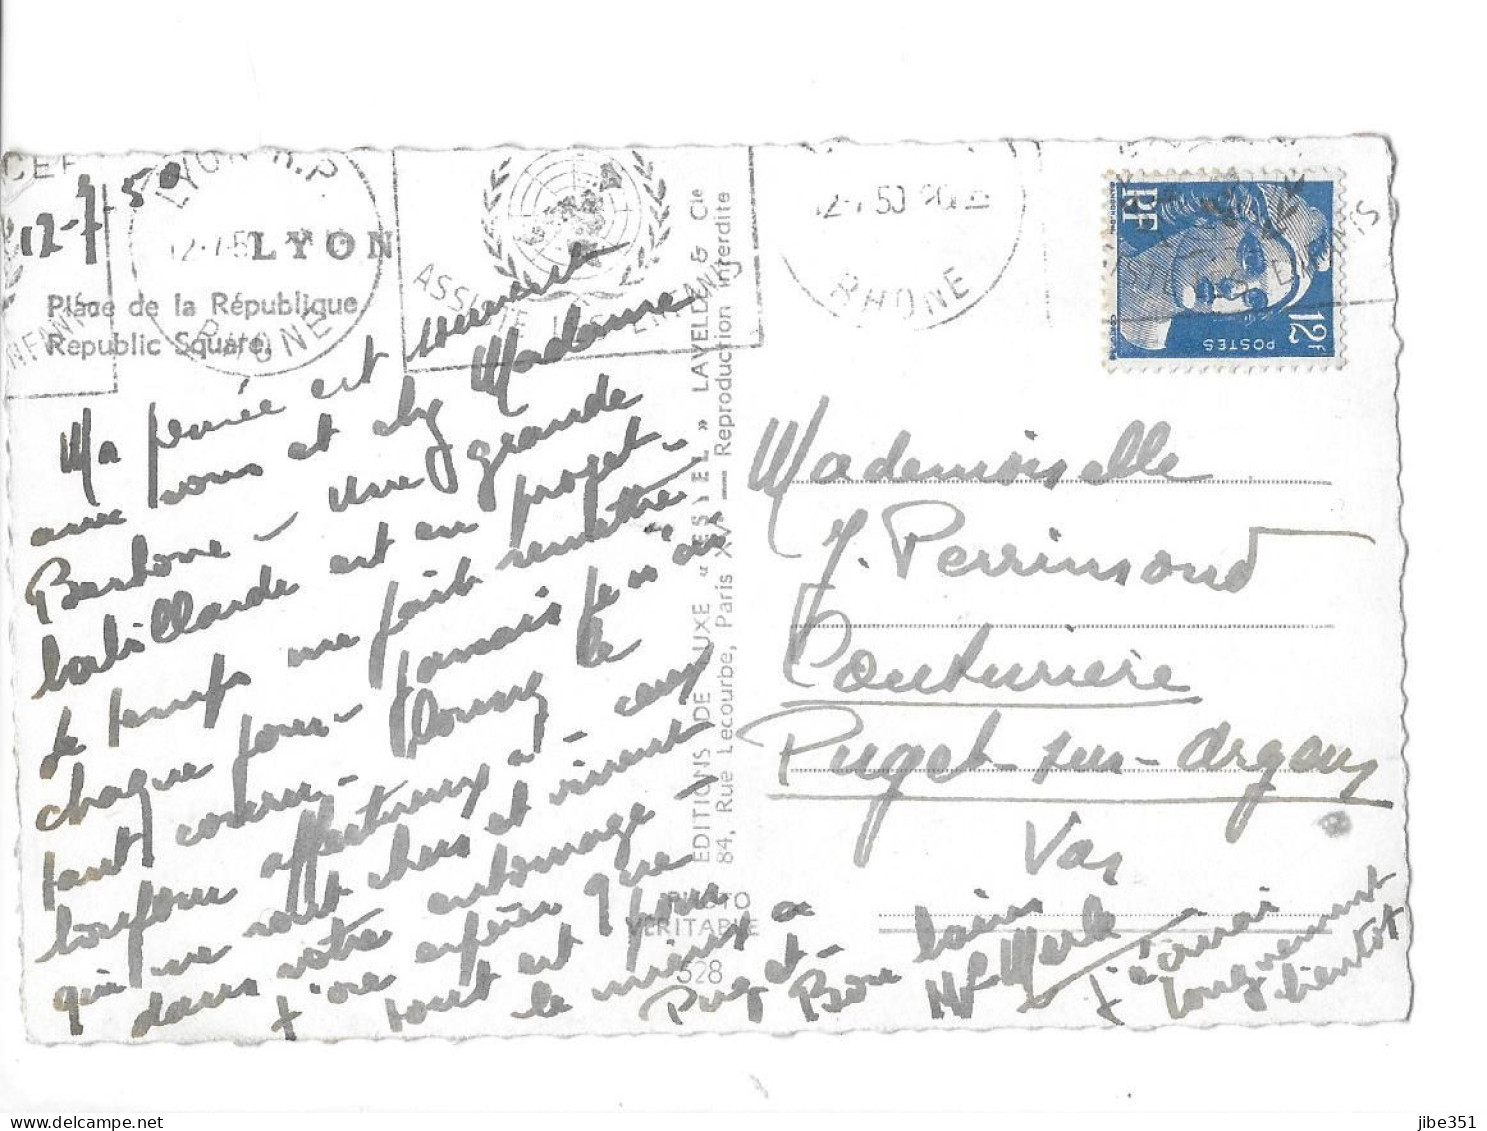 12-7-50
LYON R.P.
12-7-50
RHONE
LYON
Place de la République.
Republic Square.
ASSISTE LES ENFANTS
12-7 50 20H
RHONE
RF
POSTES
12F
Ma pensée est souvent
avec vous et chez Madame
une grande
babillarde est en projet -
le temps me fait remettre
chaque jour - jamais je n'ai
tant couru - le
toujours affectueux à ceux
qui me sont chers et vivent
dans votre entourage -
J'ose espérer que
tout est pour
le mieux à
Puget - Bon baiser
M. Merle
J'écrirai
longuement
bientôt
EDITIONS DE LUXE « ESTEL » LAVELDE & Cie
84, Rue Lecourbe, Paris XVe — Reproduction interdite
PHOTO
VERITABLE
528
Mademoiselle
J. Perrimond
Couturière
Puget-sur-Argens
Var
jibe351